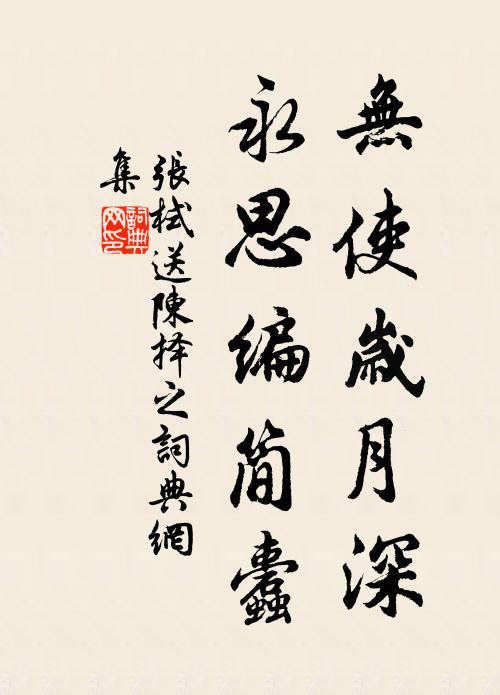 無使歲月深
永思編簡蠹
張栻送陳择之詞典網
集
詞典
网印